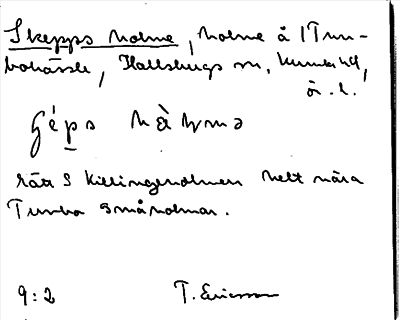 Skepps holme, holme å 1 Tun-
bohässle, Hallsbergs sn, Kumla hd,
ö. l.
Sɛ́ps hàlmə
rätt S Killingeholmen helt nära
Tunbo småholmar.
9:2 T. Ericsson